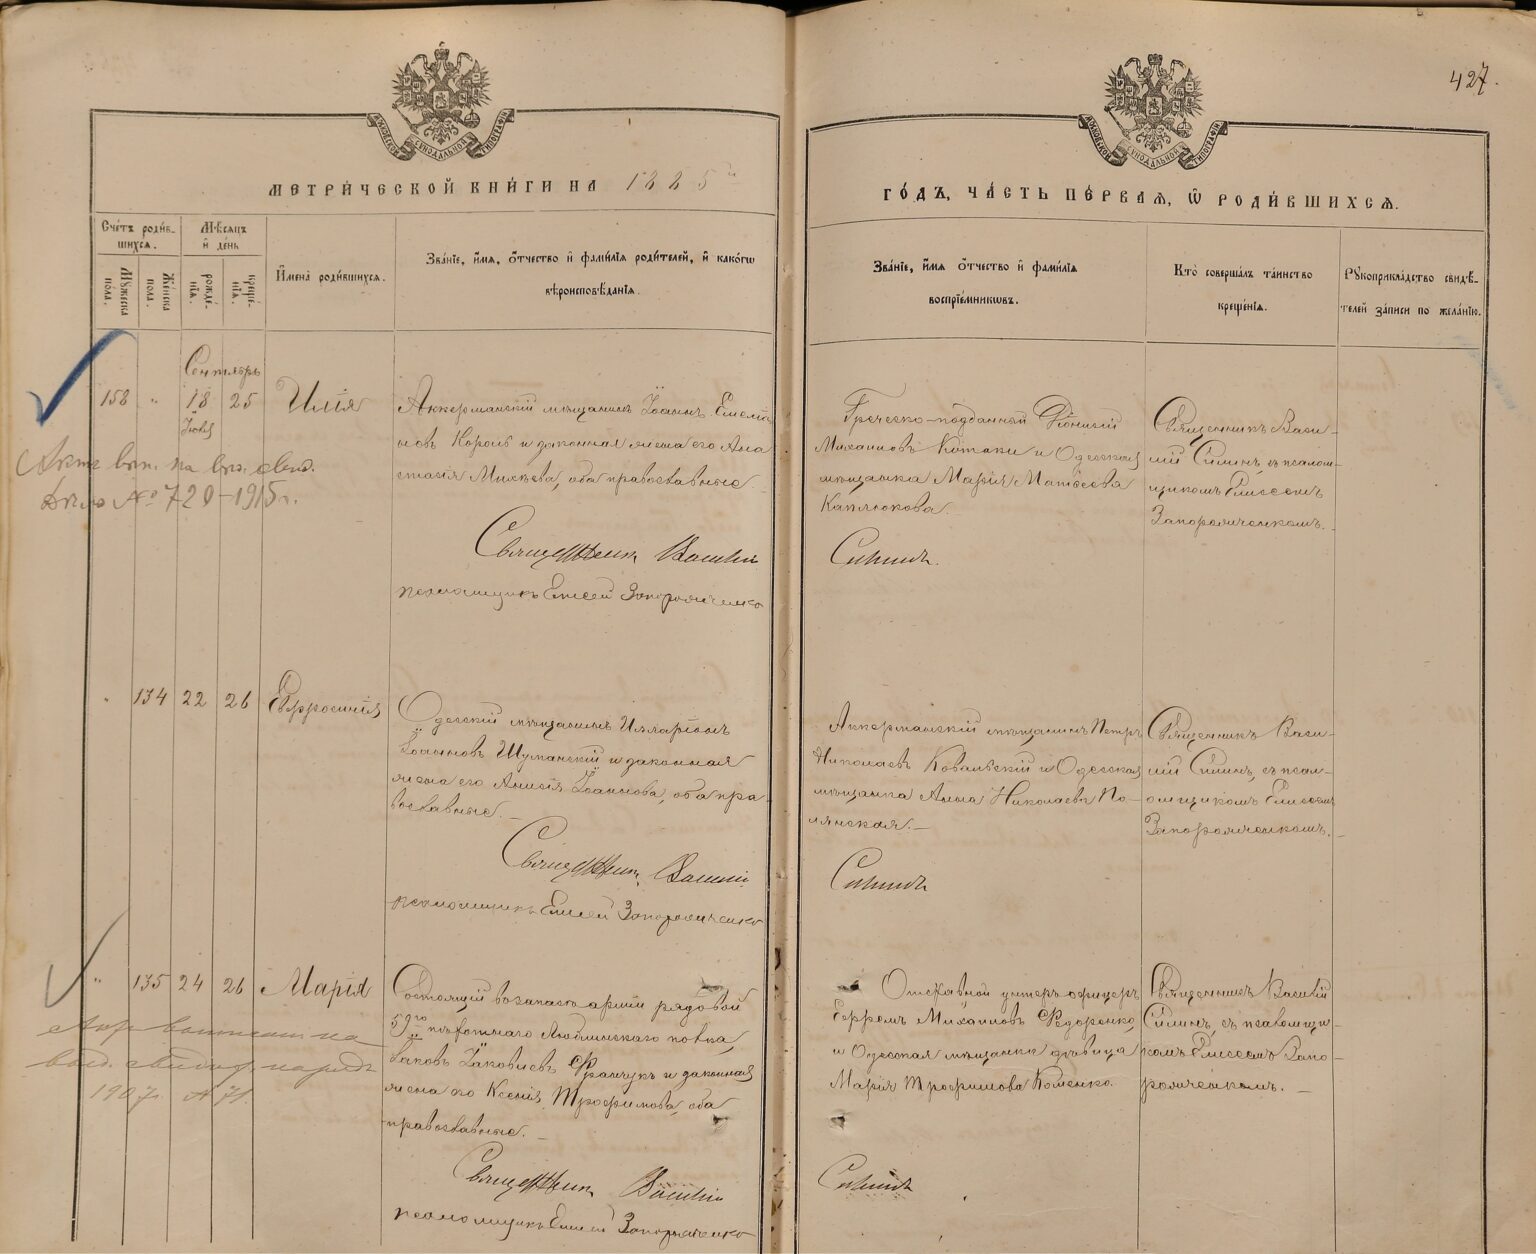 427.
МОСКОВСКОЙ СѴНОДАЛЬНОЙ ТИПОГРАФІИ
МОСКОВСКОЙ СѴНОДАЛЬНОЙ ТИПОГРАФІИ
МЕТРИ́ЧЕСКОЙ КНИ́ГИ НА 1885й
ГО́ДЪ, ЧА́СТЬ ПЕ́РВАЯ, Ѡ҆ РОДИ́ВШИХСЯ.
Сче́тъ роди́в-
шихся.
Мѣ́сяцъ
и҆ де́нь
Мꙋ́жеска по́ла.
Же́нска по́ла.
рожде́-нїя.
креще́-нїя.
И҆мена̀ роди́вшихся.
Зва́нїе, и҆́мя, ѻ҆́тчество и҆ фами́лїя роди́телей, и҆ како́гѡ
вѣроисповѣ́данїя.
Зва́нїе, и҆́мя ѻ҆́тчество и҆ фами́лїя
воспрїе́мникѡвъ.
Кто̀ соверша́лъ та́инство
креще́нїя.
Рꙋкоприкла́дство свидѣ́-
телей за́писи по жела́нїю.
Сентябрь
158 " 18 25 Илія
Іюля
Аккерманскій мѣщанинъ Іоаннъ Емелія-
новъ Король и законная жена его Ана-
стасія Михѣева, оба православные
Священникъ Василій
псаломщикъ Елисей Запорожченко
Греческо-подданной Діонисій
Михаиловъ Котаки и Одесская
мѣщанка Марія Матѳеева
Каплюкова.
Силинъ.
Священникъ Васи-
лій Силинъ, съ псалом-
щикомъ Елисеемъ
Запорожченкомъ.
Актъ вып. на выд. свид.
Дѣло № 720-1915 г.
" 134 22 26 Евфросинія
Одесскій мѣщанинъ Илларіонъ
Іоанновъ Шуманскій и законная
жена его Анисія Іоаннова, оба пра-
вославные.
Священникъ Василій
псаломщикъ Елисей Запорожченко
Аккерманскій мѣщанинъ Петръ
Николаевъ Ковальскій и Одесская
мѣщанка Анна Николаева По-
лянская.
Силинъ
Священникъ Васи-
лій Силинъ, съ псал-
омщикомъ Елисеемъ
Запорожченкомъ.
" 135 24 26 Марія
Состоящій въ запасѣ арміи рядовой
59го пѣхотнаго Люблинскаго полка,
Іаковъ Іаковлевъ Франчукъ и законная
жена его Ксенія Трофимова, оба
православные.
Священникъ Василій
псаломщикъ Елисей Запорожченко
Отставной унтеръ офицеръ
Михаиловъ Федоренко,
и Одесская мѣщанка дѣвица
Марія Трофимова Коменко.
Силинъ
Священникъ Василій
Силинъ, съ псаломщи-
комъ Елисеемъ Запо-
рожченкомъ.
1907 г. № 71.